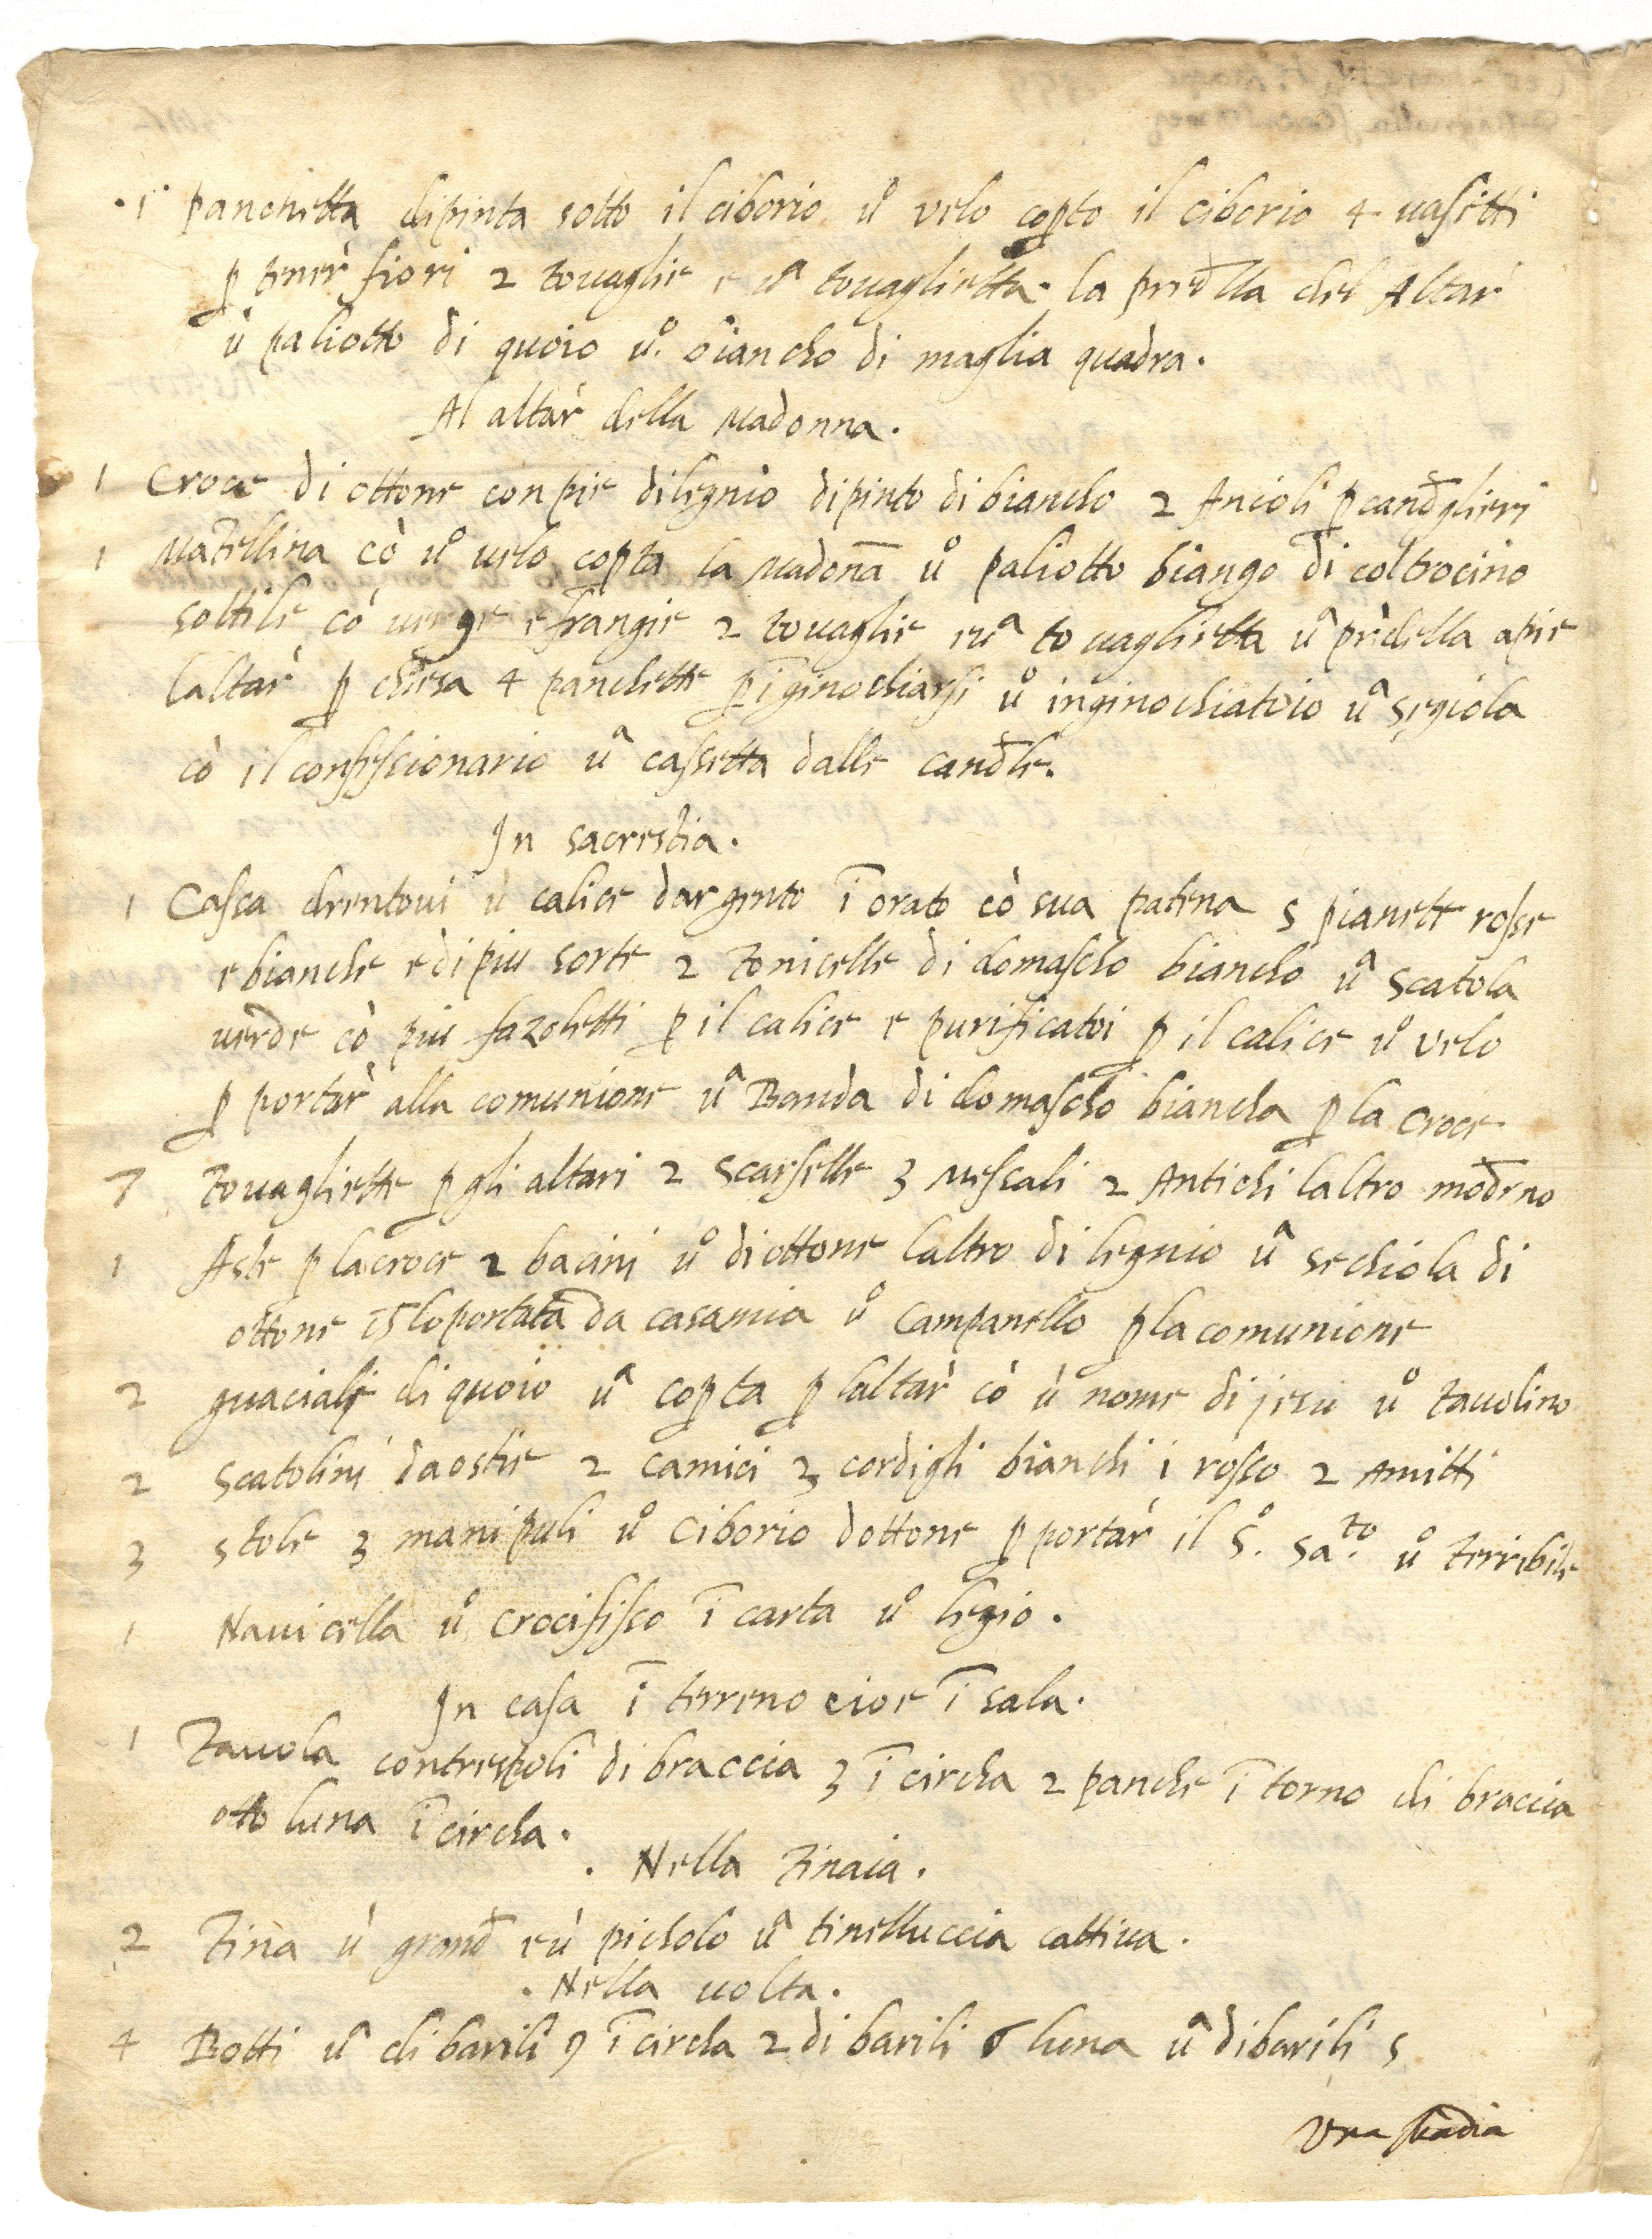 1 panchetta dipinta sotto il ciborio uº velo copto il ciborio 4 uasetti
p tener fiori 2 touaglie e uª touaglietta. la predlla del Altar
ù paliotto di quoio uº. biancho di maglia quadra.
Al altar della Madonna.
1 Croce di ottone con pie di legnio dipinto di biancho 2 Ancioli p candglieri
1 Matellina cò uº uelo copta la Madonā uº paliotto biango di coltrocino
sottile cò uerge e frangie 2 touaglie e uª touaglietta uª pridella apie
laltar p chiesa 4 panchette p īginochiarsi uº inginochiatoio uª segiola
cò il confissionario uª cassetta dalle candle.
In sacrestia.
1 Cassa drentoui ù calice dargento ī orato cò sua patena 5 pianete rosse
e bianche e di piu sorte 2 Tonicelle di domascho biancho uª scatola
uerde cò piu fazoletti p il calice e purificatoi p il calice uº velo
p portar alla comunione uª Banda di domascho biancha p la croce
7 Touagliette p gli altari 2 scarselle 3 Messali 2 Antichi laltro modrno
1 Aste p la croce 2 bacini uº di ottone laltro di legnio uª sechiola di
ottone lo portata da casa mia uº campanello p la comunione
2 guaciali di quoio uª copta p laltar cò ù nome di jesu uº tauolino
2 scatolini da ostie 2 camici 3 cordigli bianchi 1 rosso 2 Amitti
3 stole 3 manipuli uº ciborio dottone p portar il Sº. Sa.to uº terribile
1 Nauicella uº crocifisso ī carta uº legio.
In casa ī terreno cioe ī sala.
1 Tauola con trespoli di braccia 3 ī circha 2 panche ī torno di braccia
otto luna ī circha.
. Nella Tinaia.
2 Tina ù grand e ù picholo uª tinelluccia cattiua.
. Nella uolta.
4 Botti uª di barili 9 ī circha 2 di barili 6 luna uª di barili 5
Vna